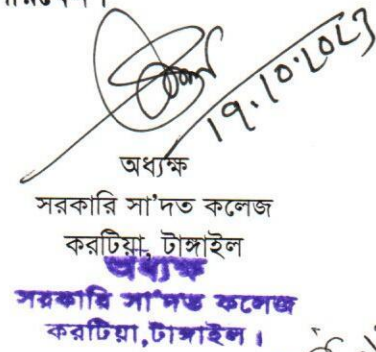 ১৭.১০.২০২৩
অধ্যক্ষ
সরকারি সা'দত কলেজ
করটিয়া, টাঙ্গাইল
অধ্যক্ষ
সরকারি সা'দত কলেজ
করটিয়া,টাঙ্গাইল।